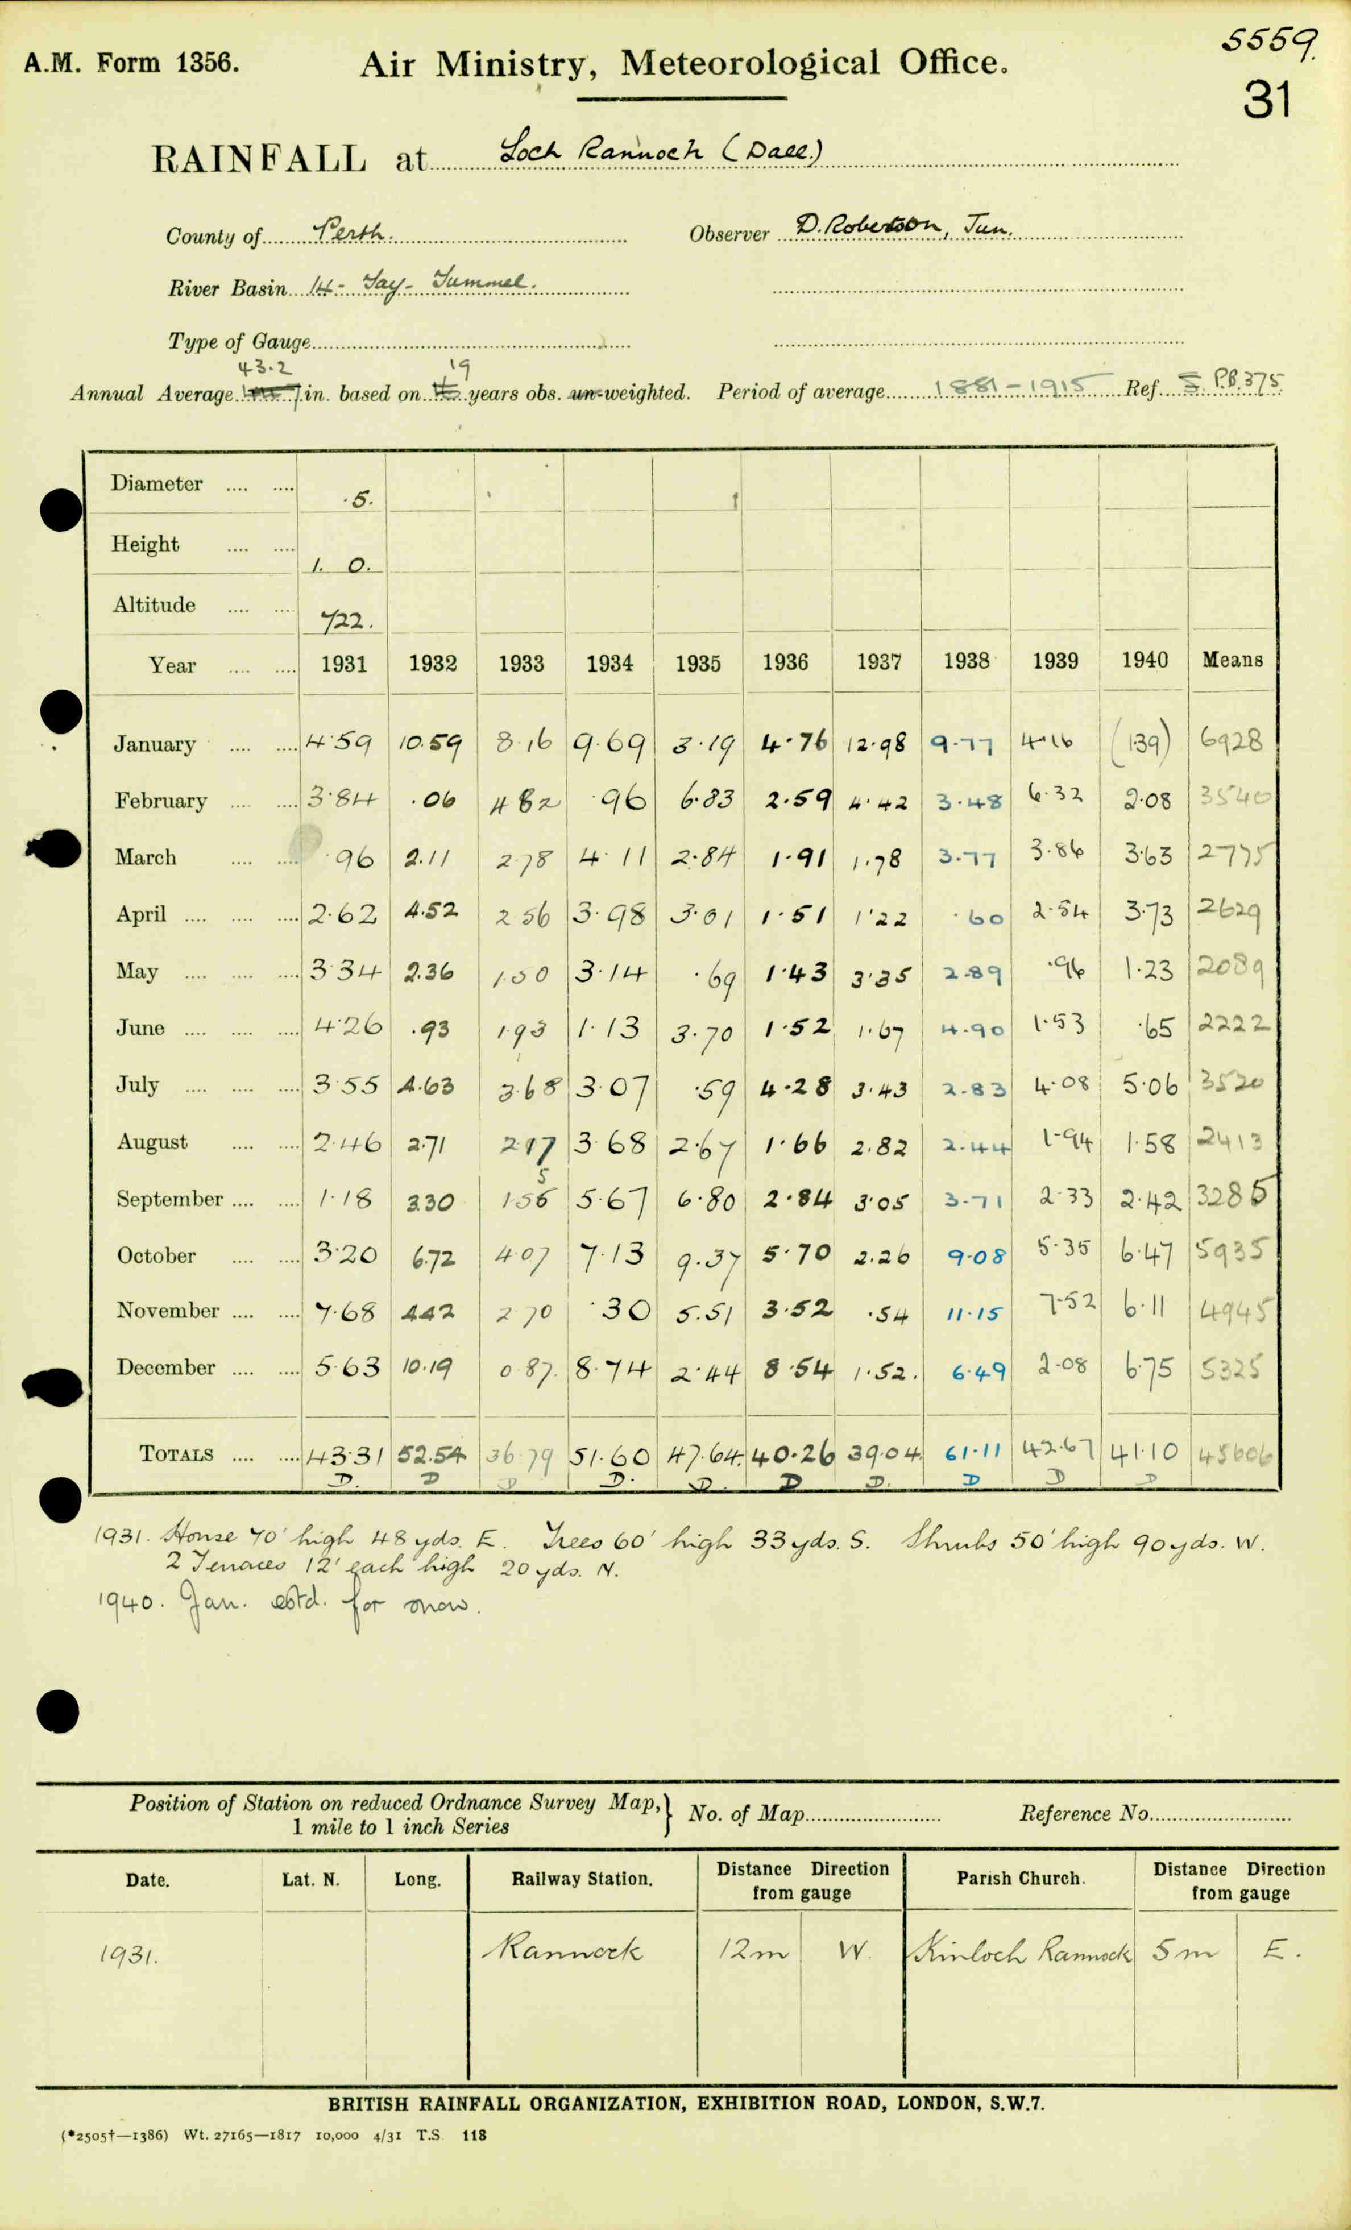 5559.
A.M. Form 1356. Air Ministry, Meteorological Office.
31
RAINFALL at Loch Rannoch (Dall.)
County of Perth. Observer D. Robertson, Jun.
River Basin 14 - Tay - Tummel.
Type of Gauge
43.2 19
Annual Average in. based on years obs. un-weighted. Period of average 1881-1915 Ref. S. P.B. 375.
Diameter .... .... 5.
Height .... .... 1. 0.
Altitude .... .... 722.
Year .... .... 1931 1932 1933 1934 1935 1936 1937 1938 1939 1940 Means
January .... .... 4.59 10.59 8.16 9.69 3.19 4.76 12.98 9.77 4.16 (1.39) 6928
February .... .... 3.84 .06 4 82 .96 6.83 2.59 4.42 3.48 6.32 2.08 3540
March .... .... .96 2.11 2.78 4.11 2.84 1.91 1.78 3.77 3.86 3.63 2775
April .... .... .... 2.62 4.52 2 56 3.98 3.01 1.51 1.22 .60 2.54 3.73 2629
May .... .... .... 3.34 2.36 1.50 3.14 .69 1.43 3.35 2.89 .96 1.23 2089
June .... .... .... 4.26 .93 1.93 1.13 3.70 1.52 1.67 4.90 1.53 .65 2222
July .... .... .... 3.55 4.63 3.68 3.07 .59 4.28 3.43 2.83 4.08 5.06 3520
August .... .... 2.46 2.71 2.17 3.68 2.67 1.66 2.82 2.44 1.94 1.58 2413
September .... .... 1.18 3.30 1.55 5.67 6.80 2.84 3.05 3.71 2.33 2.42 3285
October .... .... 3.20 6.72 4.07 7.13 9.37 5.70 2.26 9.08 5.35 6.47 5935
November .... .... 7.68 4.42 2 70 .30 5.51 3.52 .54 11.15 7.52 6.11 4945
December .... .... 5.63 10.19 0.87. 8.74 2.44 8.54 1.52. 6.49 2.08 6.75 5325
TOTALS .... .... 43.31 52.54 36.79 51.60 47.64. 40.26 39.04. 61.11 42.67 41.10 45606
D. D D D. D. D D. D D D
1931. House 70' high 48 yds. E. Trees 60' high 33 yds. S. Shrubs 50' high 90 yds. W.
2 Terraces 12' each high 20 yds. N.
1940. Jan. estd. for snow.
Position of Station on reduced Ordnance Survey Map, } No. of Map Reference No.
1 mile to 1 inch Series
Date. Lat. N. Long. Railway Station. Distance Direction from gauge Parish Church. Distance Direction from gauge
1931. Rannock 12m W. Kinloch Rannock 5m E.
BRITISH RAINFALL ORGANIZATION, EXHIBITION ROAD, LONDON, S.W.7.
(*2505†—1386) Wt. 27165—1817 10,000 4/31 T.S. 118